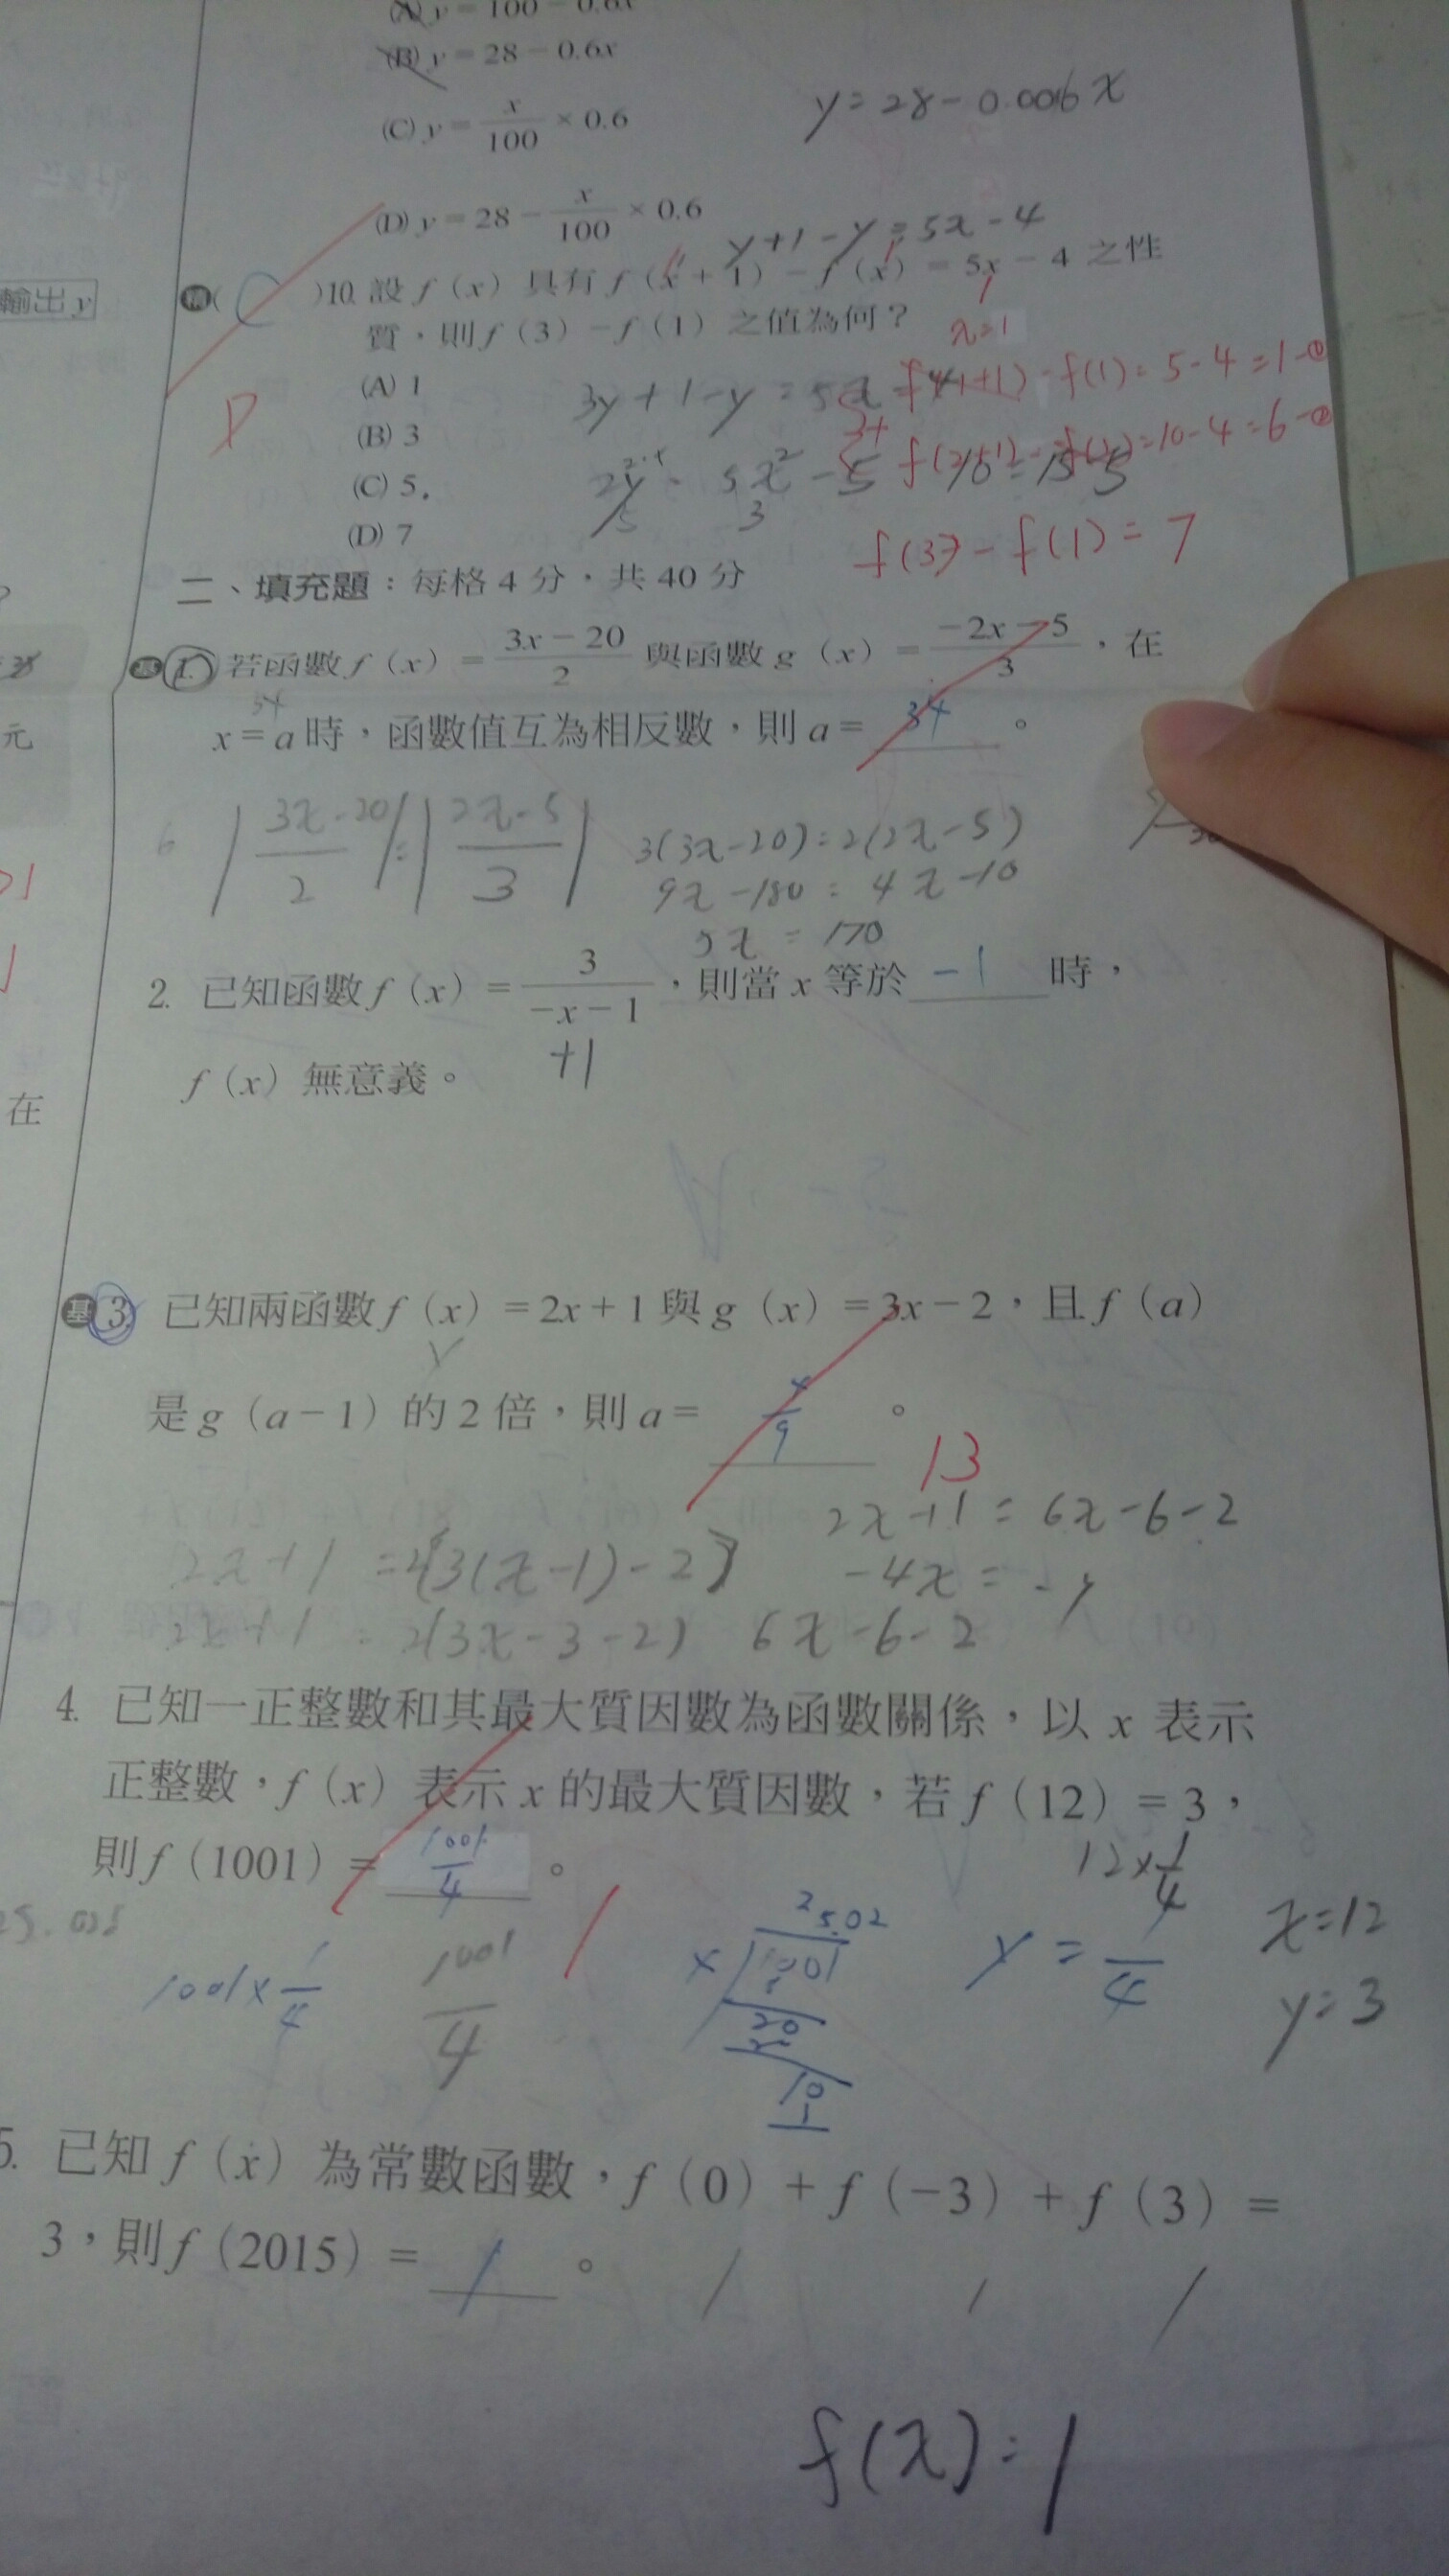 (A) y = 100 - 0.6x
(B) y = 28 - 0.6x
y = 28 - 0.006x
(C) y = x/100 × 0.6
(D) y = 28 - x/100 × 0.6
y + 1 - y = 5x - 4
輸出 y
( C )10. 設 f(x) 具有 f(x+1) - f(x) = 5x - 4 之性
質，則 f(3) - f(1) 之值為何？
x=1
(A) 1
3y + 1 - y = 5x
f(1+1) - f(1) = 5-4 = 1 -①
(B) 3
f(2+1) - f(2) = 10-4 = 6 -②
(C) 5
(D) 7
f(3) - f(1) = 7
二、填充題：每格 4 分，共 40 分
基 1. 若函數 f(x) = (3x-20)/2 與函數 g(x) = (-2x-5)/3，在
x = a 時，函數值互為相反數，則 a = 34 。
元
|(3x-20)/2| = |(2x-5)/3|
3(3x-20) = 2(2x-5)
9x - 180 = 4x - 10
5x = 170
2. 已知函數 f(x) = 3/(-x-1)，則當 x 等於 -1 時，
+1
f(x) 無意義。
在
基 3. 已知兩函數 f(x) = 2x+1 與 g(x) = 3x-2，且 f(a)
是 g(a-1) 的 2 倍，則 a = 。
13
2x+1 = 6x-6-2
2x+1 = 2{3(x-1)-2}
-4x =
2x+1 = 2(3x-3-2)
6x-6-2
4. 已知一正整數和其最大質因數為函數關係，以 x 表示
正整數，f(x) 表示 x 的最大質因數，若 f(12) = 3，
則 f(1001) = 1001/4 。
12×1/4
1001×1/4
1001/4
25.02
x=12
y=3
5. 已知 f(x) 為常數函數，f(0) + f(-3) + f(3) =
3，則 f(2015) = 1 。
1 1 1
f(x) = 1